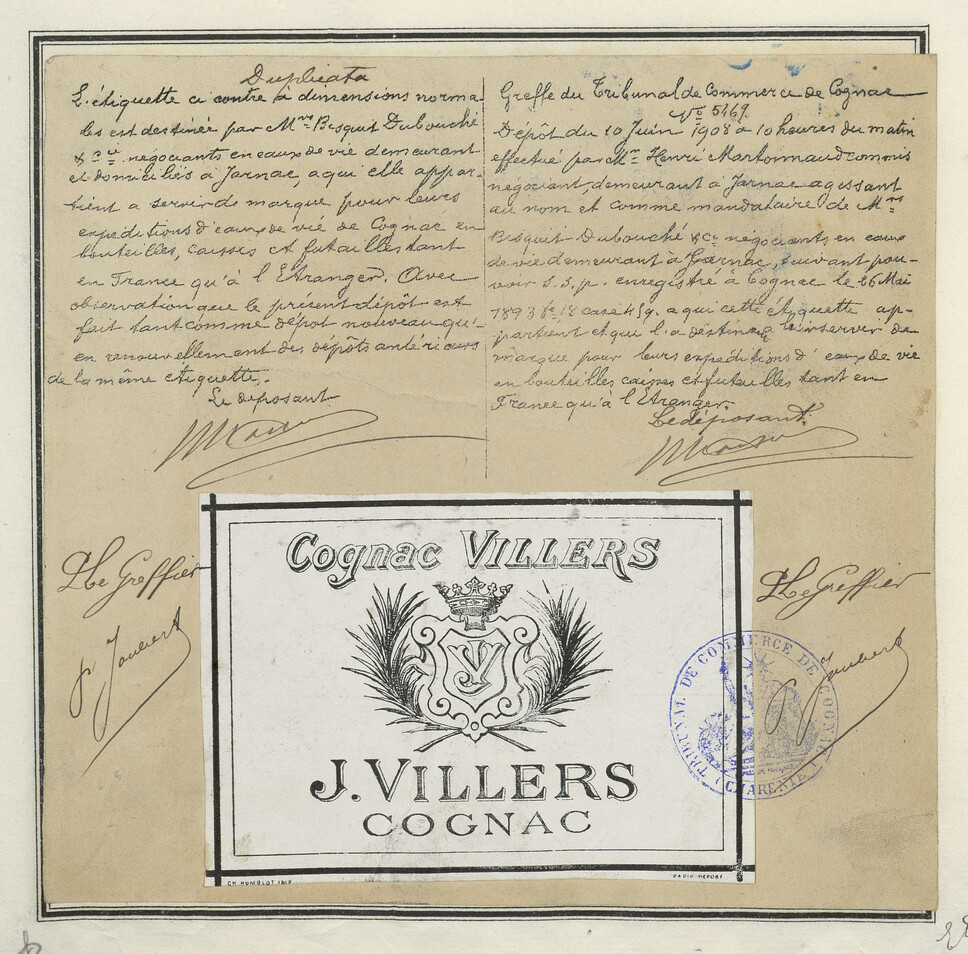 Duplicata
L'étiquette ci contre à dimensions norma-
les est destinée par Mrs Bisquit Dubouché
& Cie négociants en eaux de vie demeurant
et domiciliés à Jarnac, a qui elle appar-
tient a servir de marque pour leurs
expéditions d'eaux de vie de Cognac en
bouteilles, caisses et futailles tant
en France qu'à l'Etranger. Avec
observation que le présent dépôt est
fait tant comme dépôt nouveau qu'
en renouvellement des dépôts antérieurs
de la même étiquette.
Le déposant
Greffe du Tribunal de Commerce de Cognac
No 5469
Dépôt du 10 Juin 1908 à 10 heures du matin
effectué par Mr Henri Martonnaud commis
négociant, demeurant à Jarnac agissant
au nom et comme mandataire de Mrs
Bisquit Dubouché & Ce négociants en eaux
de vie demeurant à Jarnac, suivant pou-
voir s.s.p. enregistré à Cognac le 26 Mai
1893 fo 12 case 459. a qui cette étiquette ap-
partient et qui l'a destinée à servir de
marque pour leurs expéditions d'eaux de vie
en bouteilles caisses et futailles tant en
France qu'à l'Etranger.
Le déposant.
Le Greffier
p. Joubert
Cognac VILLERS
JV
J. VILLERS
COGNAC
CH. HUMBLOT IMP.
PARIS DÉPOSÉ
Le Greffier
p. Joubert
TRIBUNAL DE COMMERCE DE COGNAC
(CHARENTE)